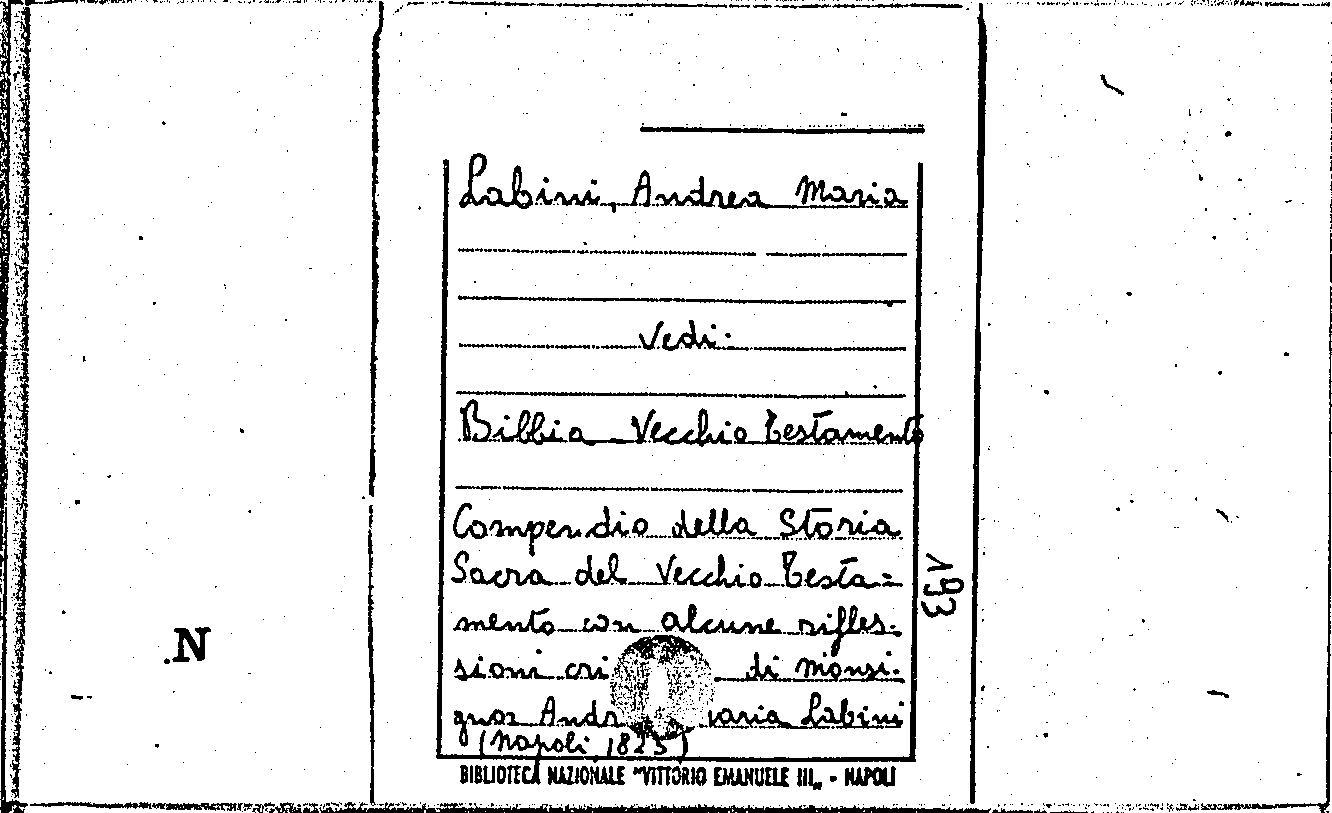 Labini, Andrea Maria
Vedi:
Bibbia - Vecchio Testamento
Compendio della Storia
Sacra del Vecchio Testa=
mento con alcune rifles-
sioni cri di Monsi-
gnor Andr aria Labini
(Napoli, 1825)
BIBLIOTECA NAZIONALE "VITTORIO EMANUELE III„ - NAPOLI
193
.N